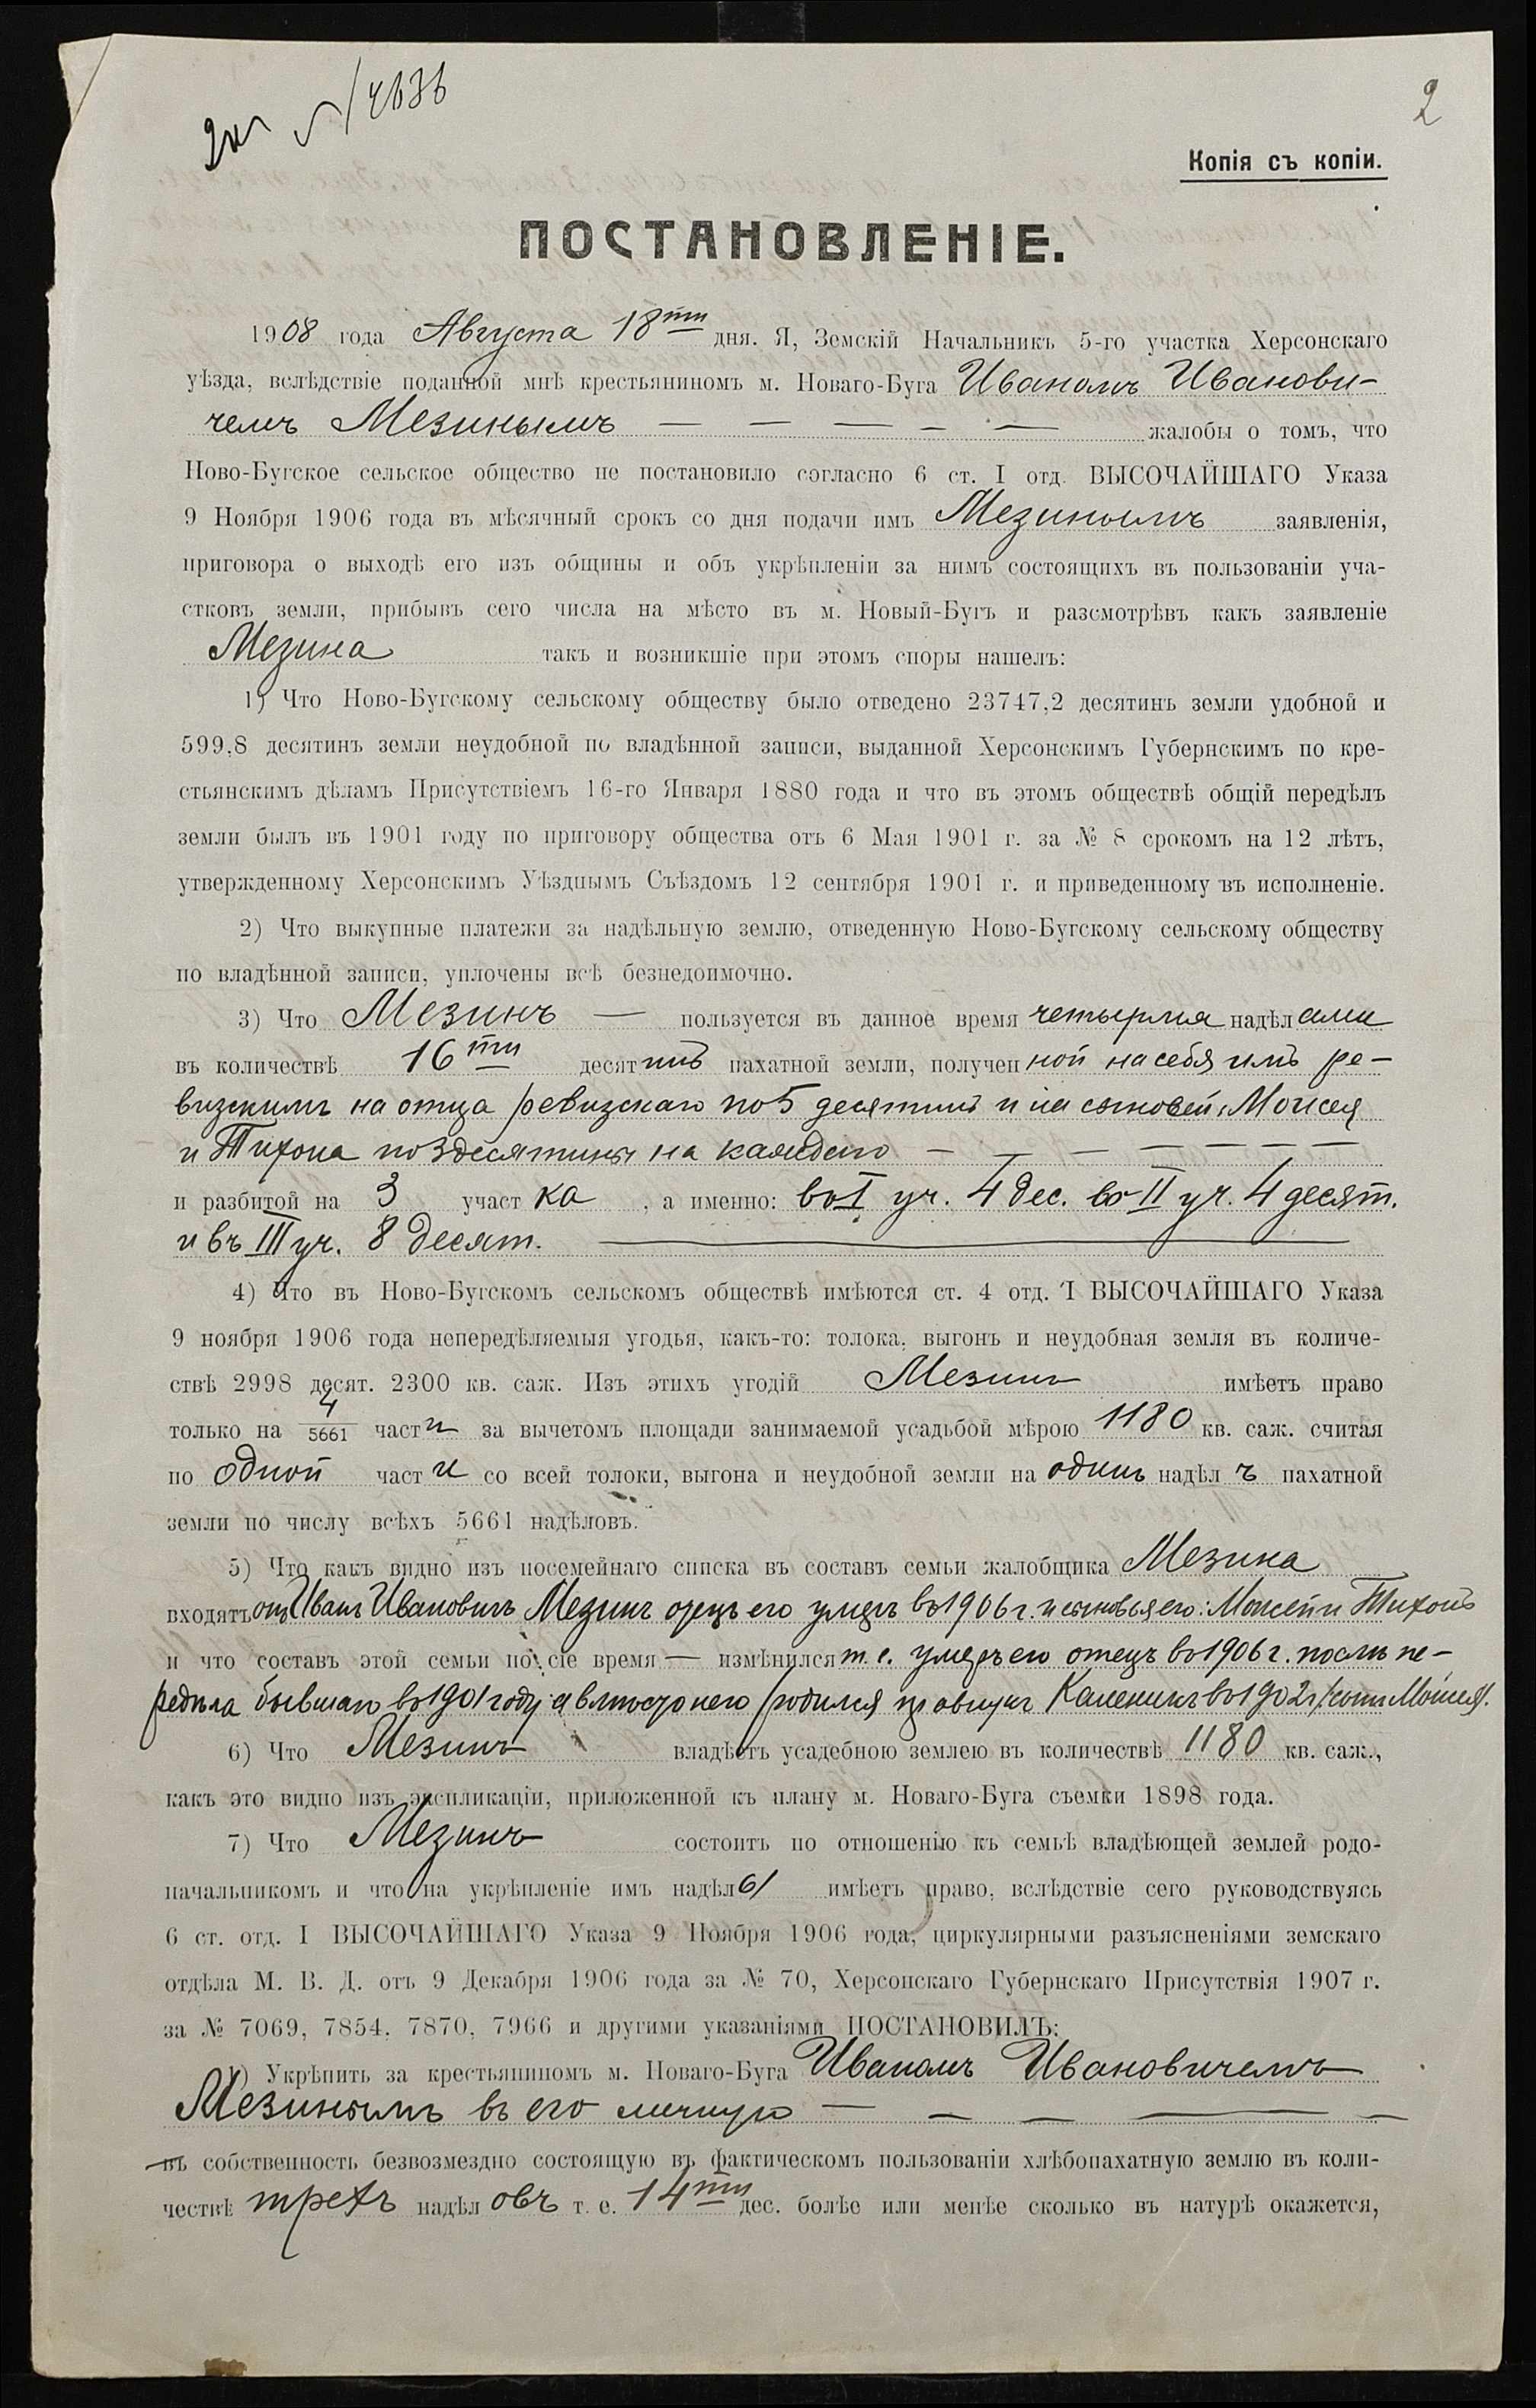 № 14636
2
Копія съ копіи.
ПОСТАНОВЛЕНІЕ.
1908 года Августа 18ти дня. Я, Земскій Начальникъ 5-го участка Херсонскаго
уѣзда, вслѣдствіе поданной мнѣ крестьяниномъ м. Новаго-Буга Иваномъ Иванови-
чемъ Мезинымъ — — — — — жалобы о томъ, что
Ново-Бугское сельское общество не постановило согласно 6 ст. I отд. ВЫСОЧАЙШАГО Указа
9 Ноября 1906 года въ мѣсячный срокъ со дня подачи имъ Мезинымъ заявленія,
приговора о выходѣ его изъ общины и объ укрѣпленіи за нимъ состоящихъ въ пользованіи уча-
стковъ земли, прибывъ сего числа на мѣсто въ м. Новый-Бугъ и разсмотрѣвъ какъ заявленіе
Мезина такъ и возникшіе при этомъ споры нашелъ:
1) Что Ново-Бугскому сельскому обществу было отведено 23747,2 десятинъ земли удобной и
599,8 десятинъ земли неудобной по владѣнной записи, выданной Херсонскимъ Губернскимъ по кре-
стьянскимъ дѣламъ Присутствіемъ 16-го Января 1880 года и что въ этомъ обществѣ общій передѣлъ
земли былъ въ 1901 году по приговору общества отъ 6 Мая 1901 г. за № 8 срокомъ на 12 лѣтъ,
утвержденному Херсонскимъ Уѣзднымъ Съѣздомъ 12 сентября 1901 г. и приведенному въ исполненіе.
2) Что выкупные платежи за надѣльную землю, отведенную Ново-Бугскому сельскому обществу
по владѣнной записи, уплочены всѣ безнедоимочно.
3) Что Мезинъ — пользуется въ данное время четырмя надѣлами
въ количествѣ 16ти десятинъ пахатной земли, полученной на себя имъ ре-
визскимъ на отца ревизскаго по 5 десятинъ и на сыновей, Моисея
и Тихона по 3 десятины на каждаго — — — — — —
и разбитой на 3 участка, а именно: въ I уч. 4 дес. въ II уч. 4 десят.
и въ III уч. 8 десят.
4) Что въ Ново-Бугскомъ сельскомъ обществѣ имѣются ст. 4 отд. I ВЫСОЧАЙШАГО Указа
9 ноября 1906 года непередѣляемыя угодья, какъ-то: толока, выгонъ и неудобная земля въ количе-
ствѣ 2998 десят. 2300 кв. саж. Изъ этихъ угодій Мезинъ имѣетъ право
только на 4/5661 части за вычетомъ площади занимаемой усадьбой мѣрою 1180 кв. саж. считая
по одной части со всей толоки, выгона и неудобной земли на одинъ надѣлъ пахатной
земли по числу всѣхъ 5661 надѣловъ.
5) Что какъ видно изъ посемейнаго списка въ составъ семьи жалобщика Мезина
входятъ онъ Иванъ Ивановичъ Мезинъ отецъ его умеръ въ 1906 г. и сыновья его: Моисей и Тихонъ
и что составъ этой семьи по сіе время — измѣнился т. е. умеръ его отецъ въ 1906 г. послѣ пе-
редѣла бывшаго въ 1901 году а вмѣсто него родился внукъ Каленикъ въ 1902 г. /сынъ Моисея/.
6) Что Мезинъ владѣетъ усадебною землею въ количествѣ 1180 кв. саж.,
какъ это видно изъ экспликаціи, приложенной къ плану м. Новаго-Буга съемки 1898 года.
7) Что Мезинъ состоитъ по отношенію къ семьѣ владѣющей землей родо-
начальникомъ и что на укрѣпленіе имъ надѣлы имѣетъ право, вслѣдствіе сего руководствуясь
6 ст. отд. I ВЫСОЧАЙШАГО Указа 9 Ноября 1906 года, циркулярными разъясненіями земскаго
отдѣла М. В. Д. отъ 9 Декабря 1906 года за № 70, Херсонскаго Губернскаго Присутствія 1907 г.
за № 7069, 7854, 7870, 7966 и другими указаніями ПОСТАНОВИЛЪ:
1) Укрѣпить за крестьяниномъ м. Новаго-Буга Иваномъ Ивановичемъ
Мезинымъ въ его личную — — — — —
въ собственность безвозмездно состоящую въ фактическомъ пользованіи хлѣбопахатную землю въ коли-
чествѣ трехъ надѣловъ т. е. 14ти дес. болѣе или менѣе сколько въ натурѣ окажется,